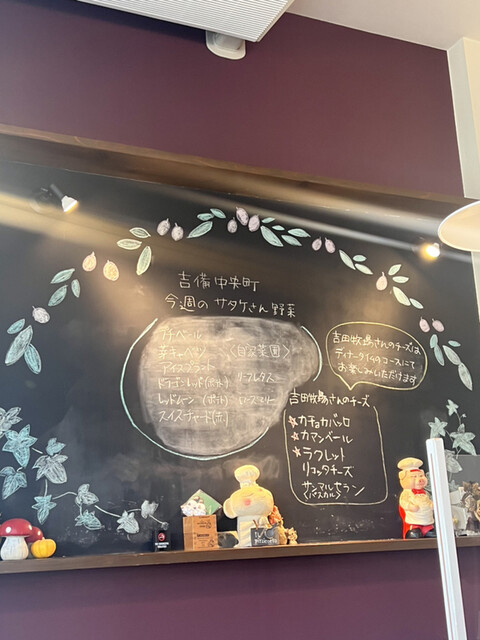 吉備中央町
今週の サタケさん野菜
プチベール
芽キャベツ 〈自家菜園〉
アイスプラント
ドラゴンレッド(ポット) リーフレタス
レッドムーン(ポット) ローズマリー
スイスチャード(赤)
吉田牧場さんのチーズは
ディナータイムのコースにて
お楽しみいただけます
吉田牧場さんのチーズ
★カチョカバッロ
★カマンベール
★ラクレット
リコッタチーズ
サンマルセラン
(パスカル)